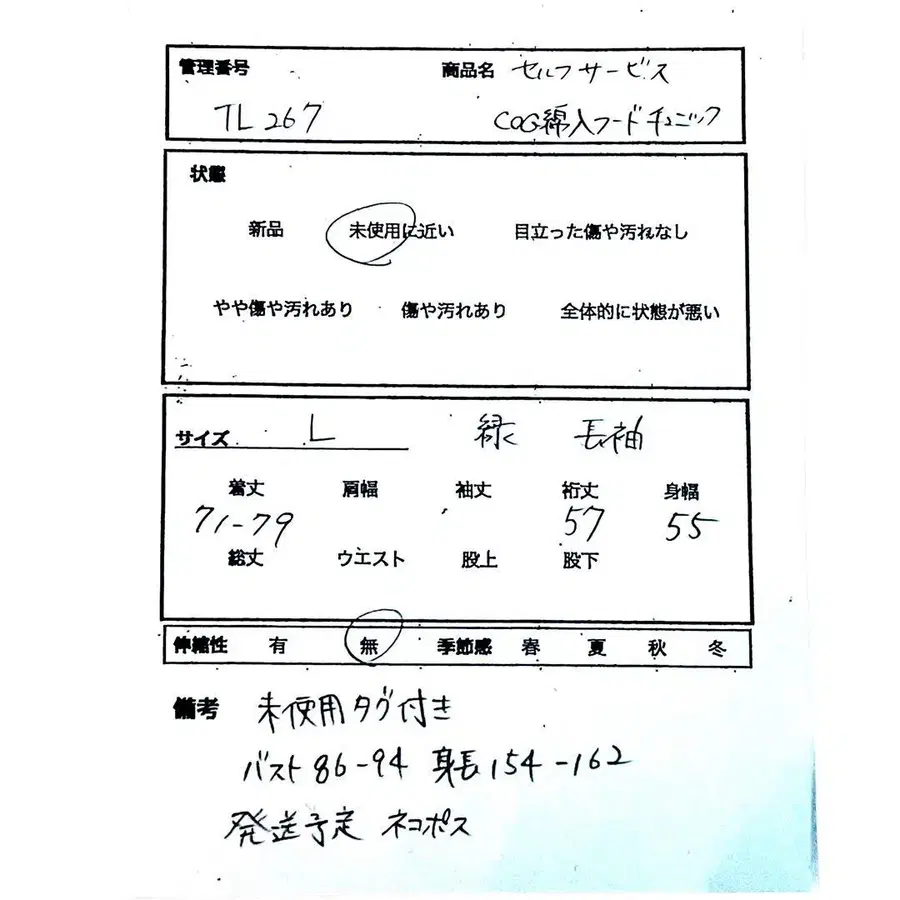 管理番号 商品名 セルフサービス
TL267 COG綿入フードチュニック
状態
新品 未使用に近い 目立った傷や汚れなし
やや傷や汚れあり 傷や汚れあり 全体的に状態が悪い
サイズ L 緑 長袖
着丈 肩幅 袖丈 裄丈 身幅
71-79 57 55
総丈 ウエスト 股上 股下
伸縮性 有 無 季節感 春 夏 秋 冬
備考 未使用タグ付き
バスト86-94 身長154-162
発送予定 ネコポス